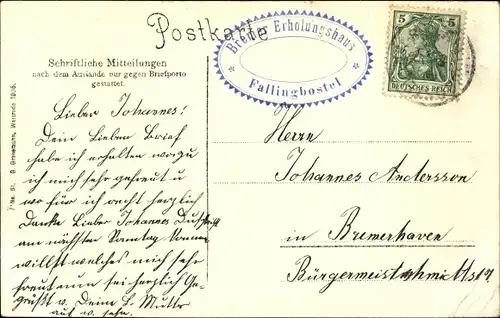 Postkarte
Bremer Erholungshaus
Fallingbostel
5 5
DEUTSCHES REICH
Schriftliche Mitteilungen
nach dem Auslande nur gegen Briefporto
gestattet.
Lieber Johannes!
Dein Lieben Brief
habe ich erhalten worzu
ich mich sehr gefreut u
wo für ich recht herzlich
Danke Lieber Johannes Du
am nächsten Sonntag kommen
willst welches mich sehr
freut nun sei herzlich Ge-
grüßt v. Deine L. Mutter
auf w. sehn.
Herrn
Johannes Anderssen
in Bremerhaven
Bürgermeist